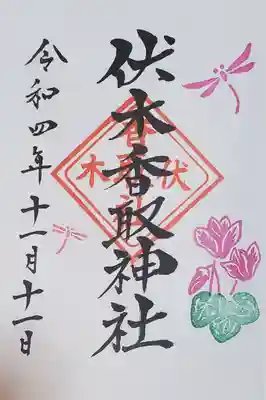 伏木香取神社
伏木
令和四年十一月十一日